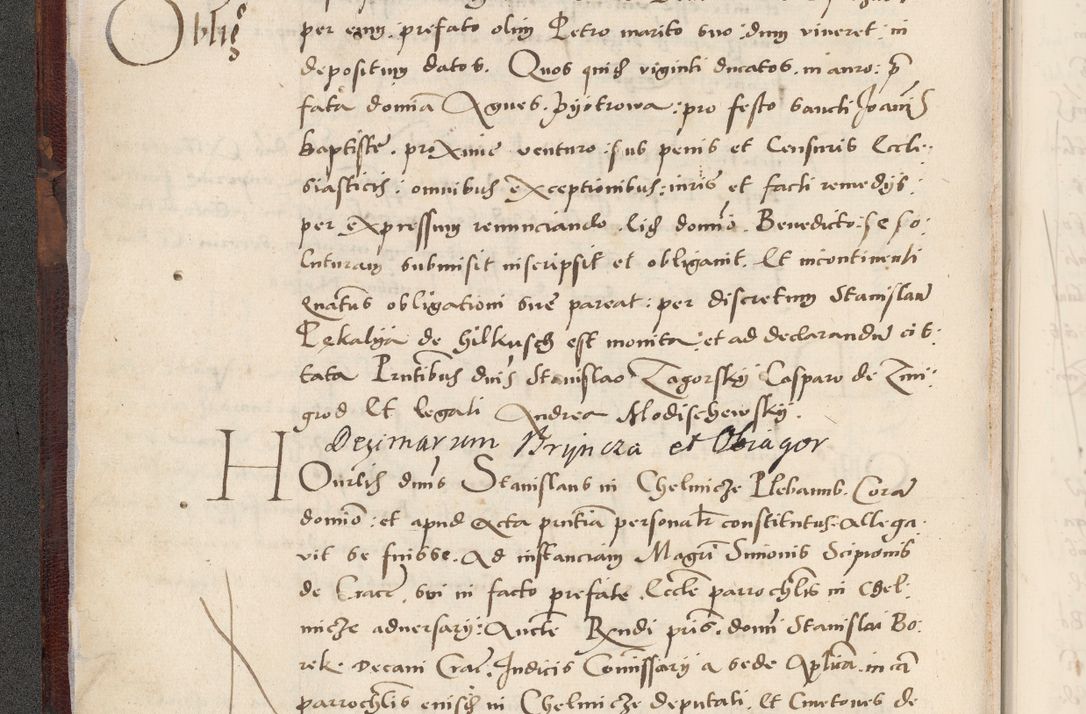 Oblig
per eum prefato olim Petro marito suo dum viveret in
depositum datos. Quos quid viginti ducatos in auro: p
fata domina Agnes Pyotrowa: pro festo sancti Joannis
Baptiste proxime venturo: sub penis et Censuris Eccle:
siasticis: omnibus exceptionibus: iuris et facti remedys:
per expressum renunciando. domino Benedicto se so:
luturam submisit inscripsit et obligavit. Et incontinenti
quatenus obligationi sue pareat: per discretum Stanislaum
Pekalya de Hilkusch est monita: et ad declarandum cit:
tata Prntibus dnis Stanislao Zagorsky Casparo de Zmi:
grod Et legali Andrea Modischewsky.
Dezimarum Bryncza et Obiagor
Honrlis dnus Stanislaus in Chelmicze Plebanus. Coram
domino: et apud Acta prntia personalr constitutus. Allega:
vit se fuisse. Ad instanciam Magri Simonis Scipionis
de Crac. sui in facto prefate Eccle parrochlis in Chel:
micze adversary: Aucte Rndi pris. domini Stanislai Bo:
rek Decani Crac. Judicis Comissary a sede Aplica in ca
parrochlis eiusd in Chelmicze deputati. Et Cmetones de